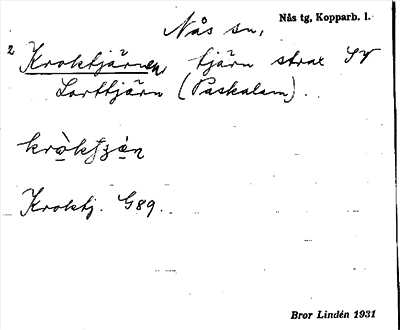 Nås sn,
Nås tg, Kopparb. l.
2 Kroktjärnen, tjärn strax SV
Lorttjärn (Paskalam).
Kroktj. G89.
Bror Lindén 1931